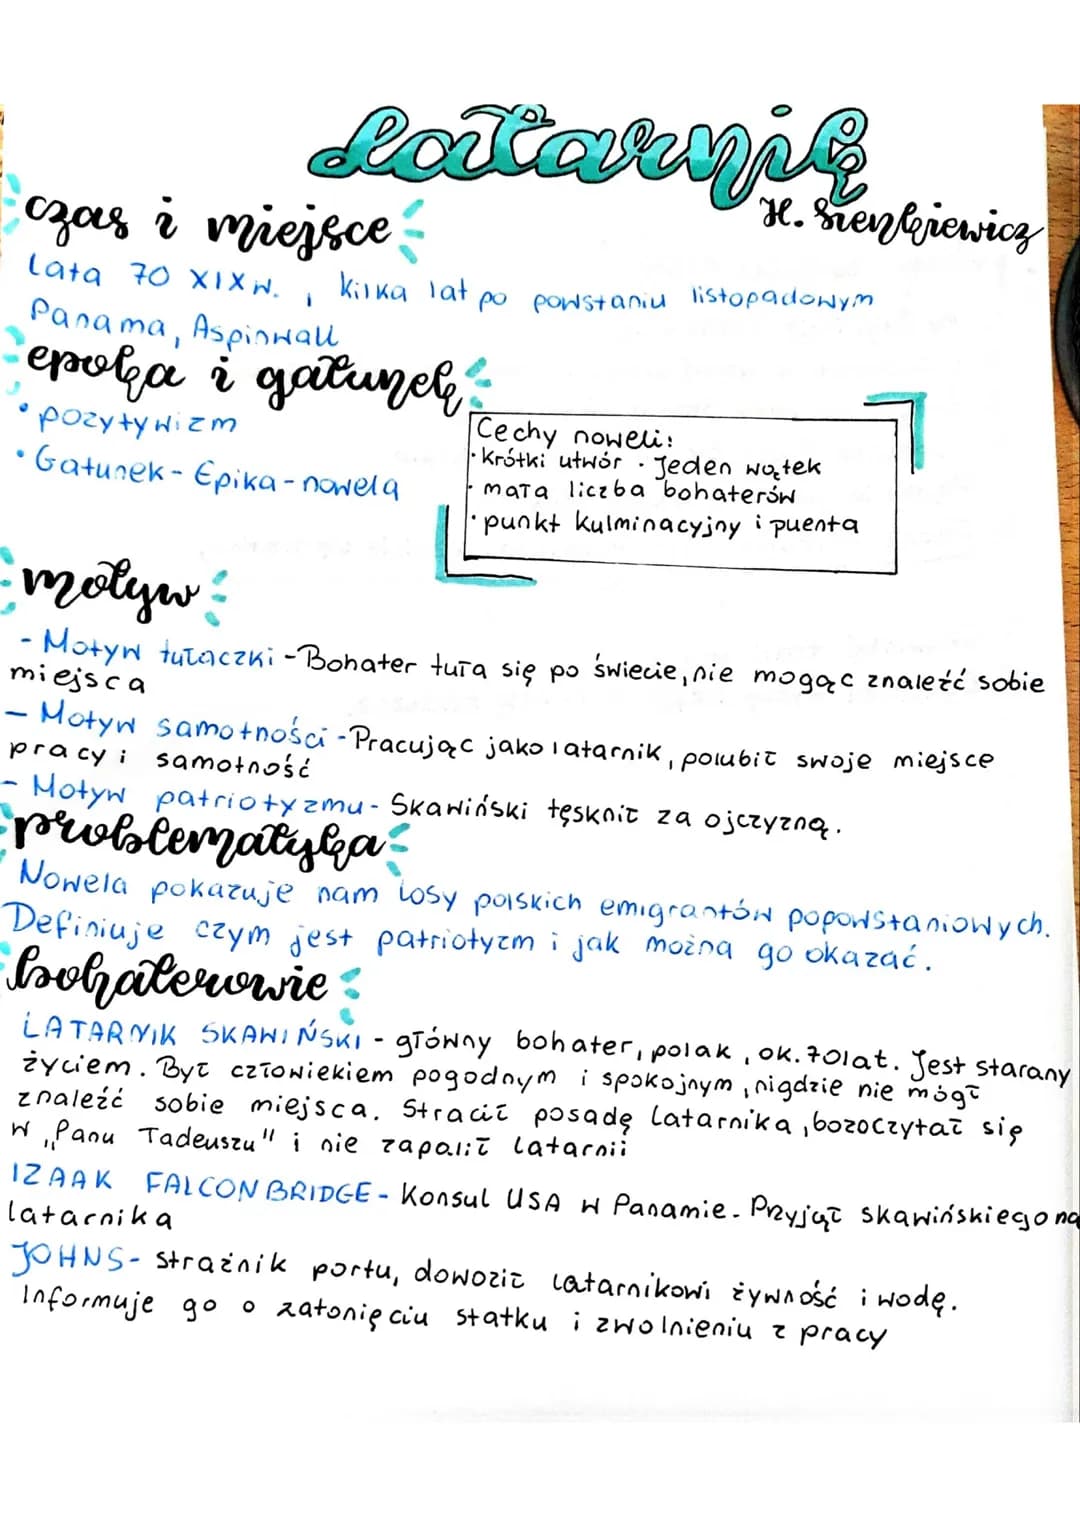 Latarnik
H. Sienkiewicz
czas i miejsce
Lata 70 XIXw., kilka lat po powstaniu listopadowym
Panama, Aspinwall
epoka i gatunek
• pozytywizm
• Gatunek - Epika - nowela
Cechy noweli:
• Krótki utwór • Jeden wątek
• mała liczba bohaterów
• punkt kulminacyjny i puenta
motyw
- Motyw tułaczki - Bohater tuła się po świecie, nie mogąc znaleźć sobie
miejsca
- Motyw samotności - Pracując jako latarnik, polubił swoje miejsce
pracy i samotność
- Motyw patriotyzmu - Skawiński tęsknił za ojczyzną.
problematyka
Nowela pokazuje nam losy polskich emigrantów popowstaniowych.
Definiuje czym jest patriotyzm i jak można go okazać.
bohaterowie
LATARNIK SKAWIŃSKI - główny bohater, polak, ok. 70lat. Jest starany
życiem. Był człowiekiem pogodnym i spokojnym, nigdzie nie mógł
znaleźć sobie miejsca. Stracił posadę latarnika, bozoczytał się
w „Panu Tadeuszu" i nie zapalił latarnii
IZAAK FALCONBRIDGE - Konsul USA w Panamie. Przyjął skawińskiego na
latarnika
JOHNS - strażnik portu, dowoził latarnikowi żywność i wodę.
Informuje go o zatonięciu statku i zwolnieniu z pracy